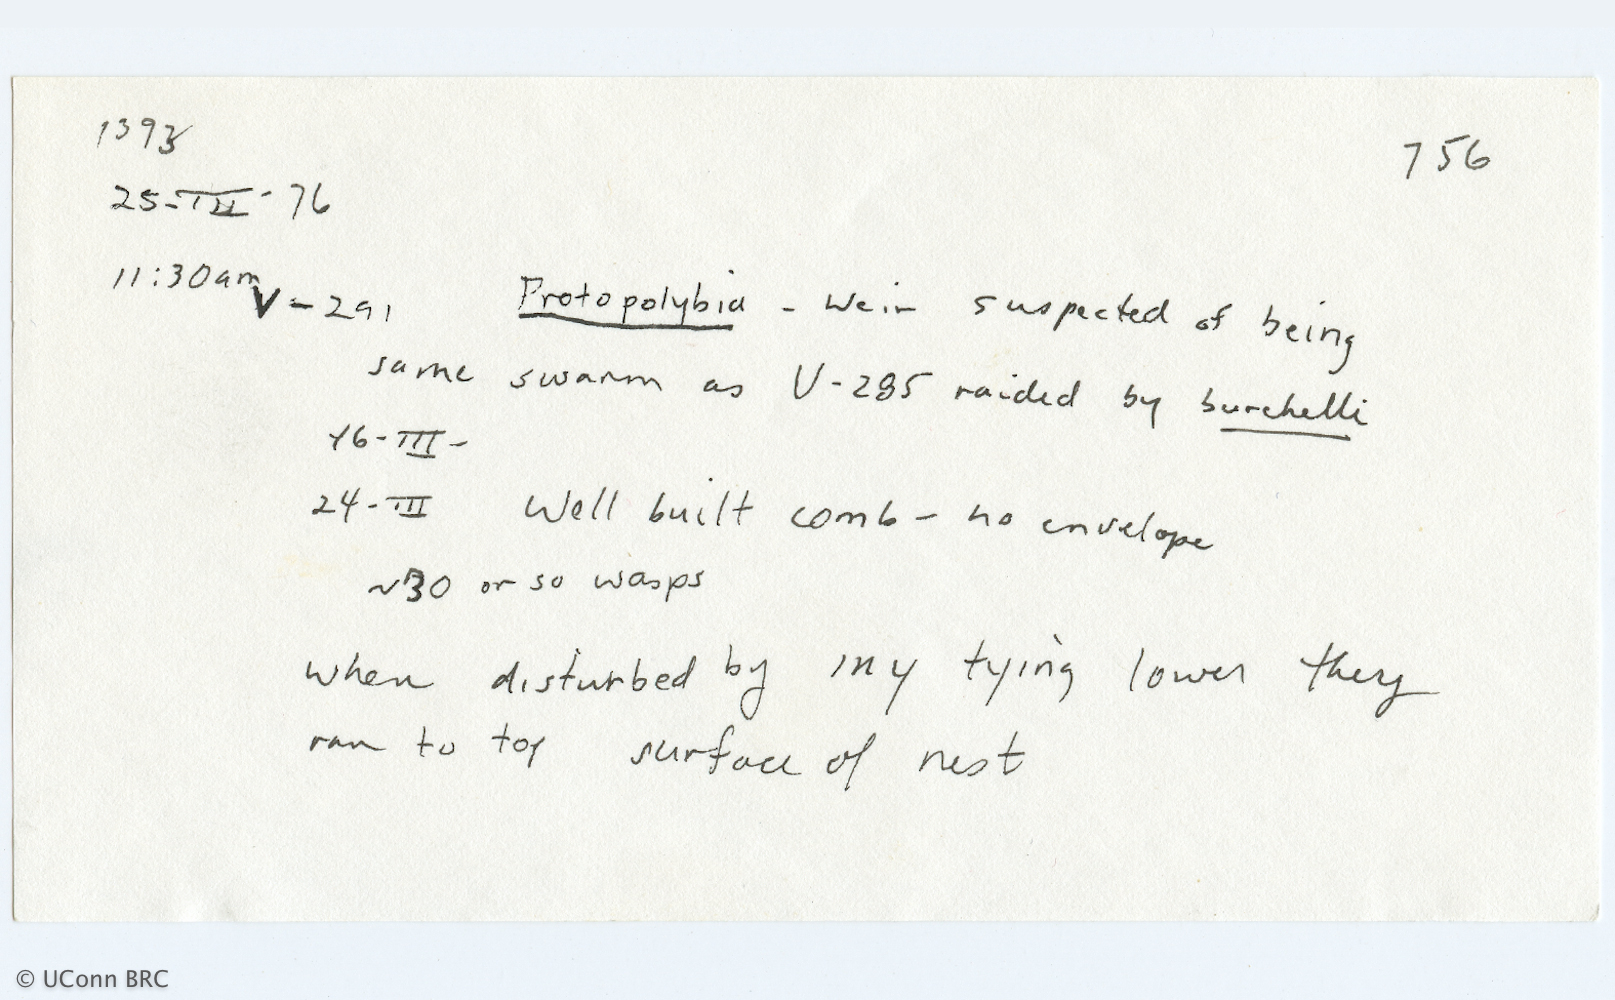 1393
756
25-III-76
11:30am
V-291 Protopolybia - Weir suspected of being
same swarm as V-285 raided by burchelli
16-III-
24-III Well built comb - no envelope
~30 or so wasps
when disturbed by my tying lower they
ran to top surface of nest
© UConn BRC